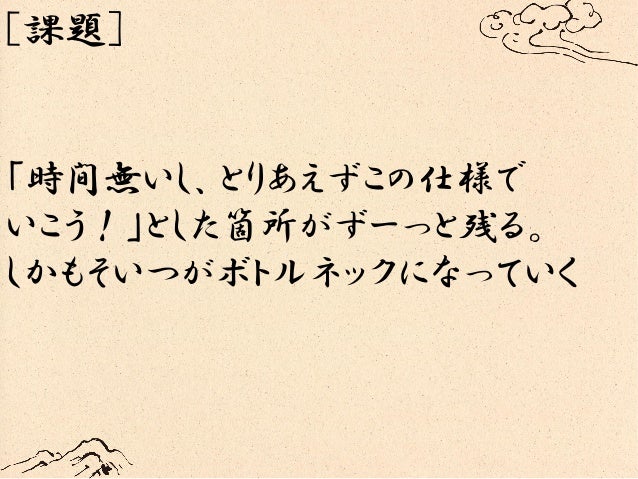 [課題]
「時間無いし、とりあえずこの仕様で
いこう！」とした箇所がずーっと残る。
しかもそいつがボトルネックになっていく